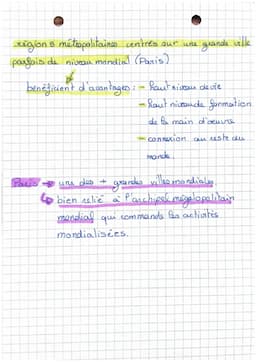 régions métropolitaines centrées sur une grande ville
parfois de niveau mondial (Paris)
bénéficient d'avantages : - haut niveau de vie
- haut niveau de formation
de la main d'œuvre
- connexion au reste du
monde.
Paris → une des + grandes villes mondiales
↳ bien relié à l'archipel mégalopolitain
mondial qui commande les activités
mondialisées.